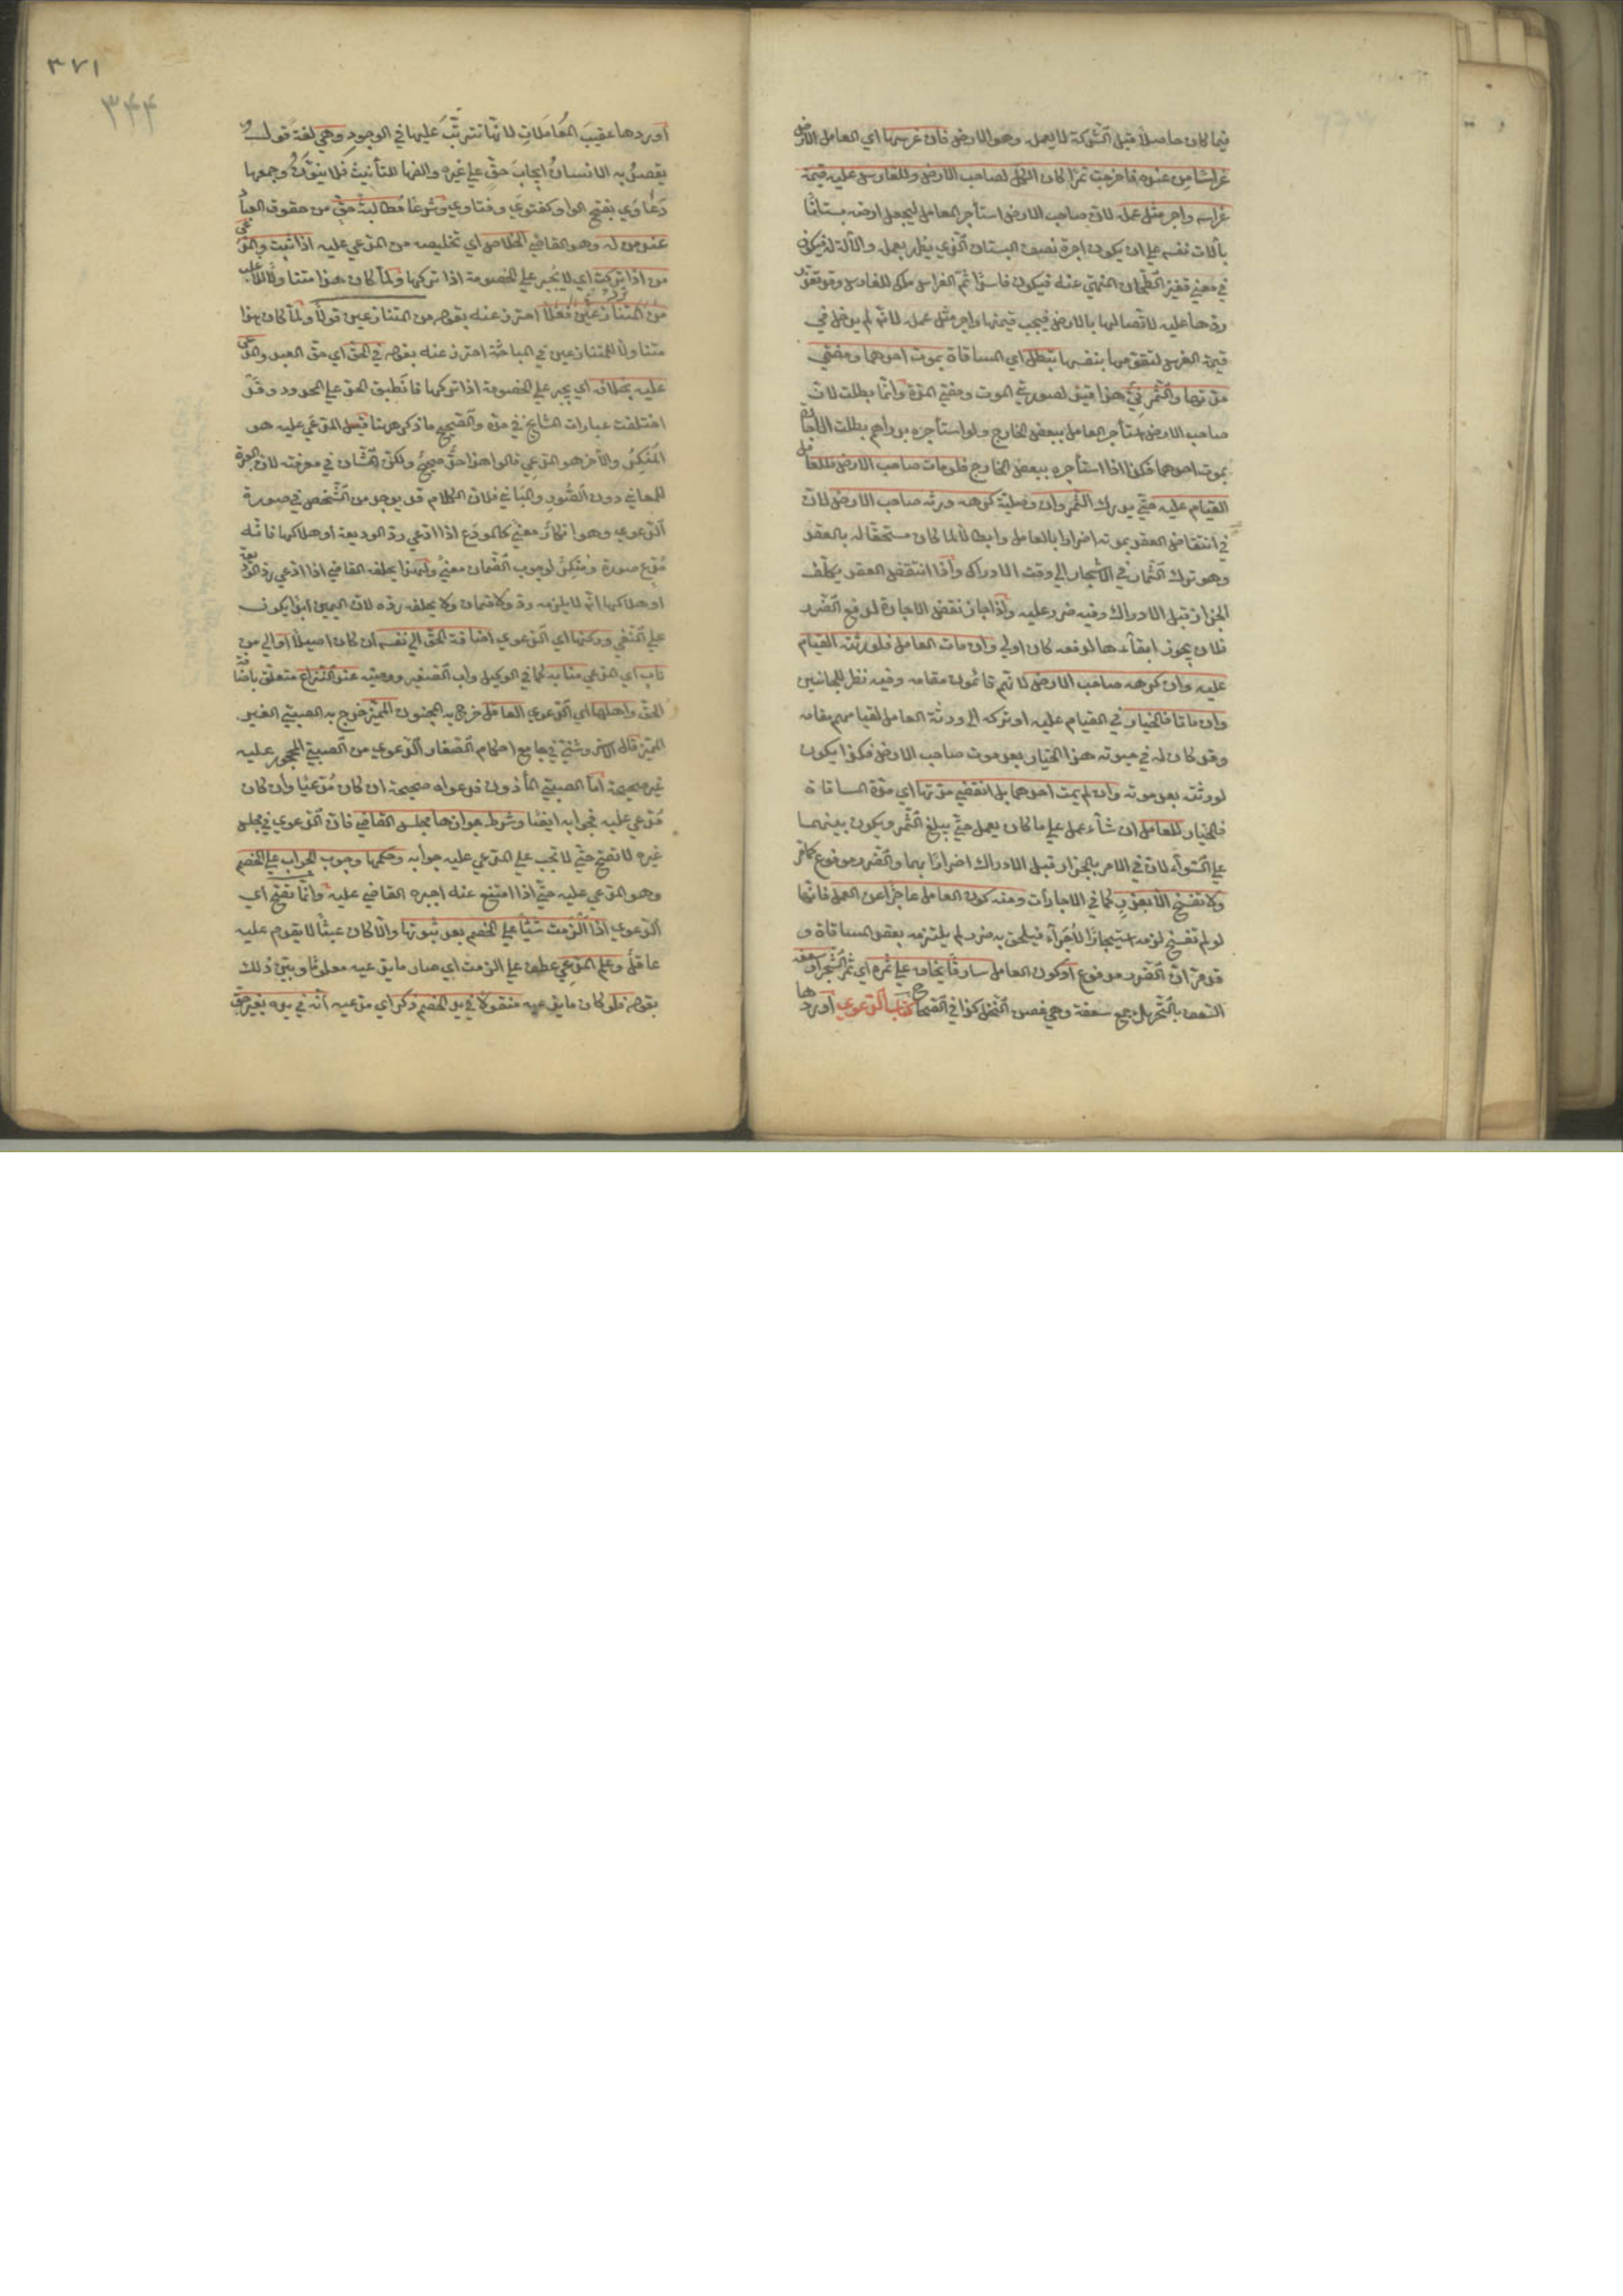 فيما كان حاصلا قبل الشركة لا بعمله وهو الارض فان غرسها اي العامل الارض
غراسا من عنده فاخرجت ثمرا كان الكل لصاحب الارض وللغارس عليه قيمة
غراسه واجر مثل عمله لان صاحب الارض استأجر العامل ليجعل ارضه بستانا
بآلات نفسه علي ان يكون اجرة نصف البستان الذي يظهر بعمله والآلة له فيكون
في معني قفيز الطحان المنهي عنه فيكون فاسدا ثم الغراس ملك للغارس وقد تعذر
ردها عليه لاتصالها بالارض فيجب قيمتها واجر مثل عمله لانه لم يدخل في
قيمة الغرس لتقومها بنفسها تبطل اي المساقاة بموت احدهما ومضي
مدتها والثمر نيّ هذا قيد لصورتي الموت ومضي المدة وانما بطلت لان
صاحب الارض استأجر العامل ببعض الخارج ولو استأجره بدراهم بطلت الاجارة
بموت احدهما فكذا اذا استأجره ببعض الخارج فلو مات صاحب الارض فللعامل
القيام عليه حتي يدرك الثمر وان وصلية كرهه ورثة صاحب الارض لان
في انتقاض العقد بموته اضرارا بالعامل وابطالا لما كان مستحقا له بالعقد
وهو ترك الثمار في الاشجار الي وقت الادراك واذا انتقض العقد يكلف
الجزاز قبل الادراك وفيه ضرر عليه واذا جاز نقض الاجارة لدفع الضرر
فلان يجوز ابقاءها لدفعه كان اولي وان مات العامل فلورثته القيام
عليه وان كرهه صاحب الارض لانهم قائمون مقامه وفيه نظر للجانبين
وان ماتا فالخيار في القيام عليه او تركه الي ورثة العامل لقيامهم مقامه
وقد كان له في حيوته هذا الخيار بعد موت صاحب الارض فكذا يكون
لورثته بعد موته وان لم يمت احدهما بل انقضي مدتها اي مدة المساقاة
فالخيار للعامل ان شاء عمل علي ما كان يعمل حتي يبلغ الثمر ويكون بينهما
علي السواء لان في الامر بالجزاز قبل الادراك اضرارا بهما والضرر مدفوع كما مر
ولا تفسخ الا بعذر كما في الاجارات ومنه كون العامل عاجزا عن العمل فانها
لو لم تفسخ لزمه استيجار الاجراء فيلحق به ضرر لم يلتزمه بعقد المساقاة و
قد مر ان الضرر مدفوع او كون العامل سارقا يخاف علي ثمره اي ثمر الشجر او سعفه
السعف بالتحريك جمع سعفة وهي غصن النخل كذا في الصحاح كتاب الدعوي اوردها
٣٧١
٣٤٤
اوردها عقيب المعاملات لانها تترتب عليها في الوجود وهي لغة قول
يقصد به الانسان ايجاب حق علي غيره والفها للتأنيث فلا ينون وجمعها
دعاوي بفتح الواو كفتوي وفتاوي وشرعا مطالبة حق من حقوق العباد
عند من له وهو القاضي الخلاص اي تخليصه من المدعي عليه اذا ثبت والمدعي
من اذا تركت اي لا يجبر علي الخصومة اذا تركها ولما كان هذا متناولا للاعلي
من المتنازعين فعلا احترز عنه بقوله من المتنازعين قولا ولما كان هذا
متناولا للمتنازعين في المباحثة احترز عنه بقوله في الحق اي حق العبد والمدعي
عليه بخلافه اي يجبر علي الخصومة اذا تركها فانطبق الحد علي المحدود وقد
اختلفت عبارات المشايخ في حده والصحيح ما ذكر ههنا قيل المدعي عليه هو
المنكر والآخر هو المدعي قالوا هذا حد صحيح ولكن الشان في معرفته لان العبرة
للمعاني دون الصور والمباني فلان الكلام قد يوجد من الشخص في صورة
الدعوي وهو انكار معني كالمودع اذا ادعي رد الوديعة او هلاكها فانه
مدع صورة ومنكر لوجوب الضمان معني ولهذا يحلفه القاضي اذا ادعي رد الوديعة
او هلاكها انه لا يلزمه رد ولا ضمان ولا يحلفه رده لان اليمين ابدا يكون
علي النفي وركنها اي الدعوي اضافة الحق الي نفسه ان كان اصيلا او الي من
ناب اي المدعي منابه كما في الوكيل واب الصغير ووصيه عند النزاع متعلق باضافة
الحق واهلها اي الدعوي العاقل خرج به المجنون المميز خرج به الصبي الغير
المميز قال الاستروشني في جامع احكام الصغار الدعوي من الصبي المحجور عليه
غير صحيحة اما الصبي المأذون فدعواه صحيحة ان كان مدعيا وان كان
مدعي عليه فجوابه ايضا وشرط جوازها مجلس القاضي فان الدعوي في مجلس
غيره لا تصح حتي لا تجب علي المدعي عليه جوابه وحكمها وجوب الجواب علي الخصم
وهو المدعي عليه حتي اذا امتنع عنه اجبره القاضي عليه وانما تصح اي
الدعوي اذا الزمت شيئا علي الخصم بعد ثبوتها والا كان عبثا لا يقدم عليه
عاقل وعلم المدعي عطف علي الزمت اي صار ما يدعيه معلوما وبيّن ذلك
بقوله فلو كان ما يدعيه منقولا في يد الخصم ذكر اي مدعيه انه في يده بغير حق